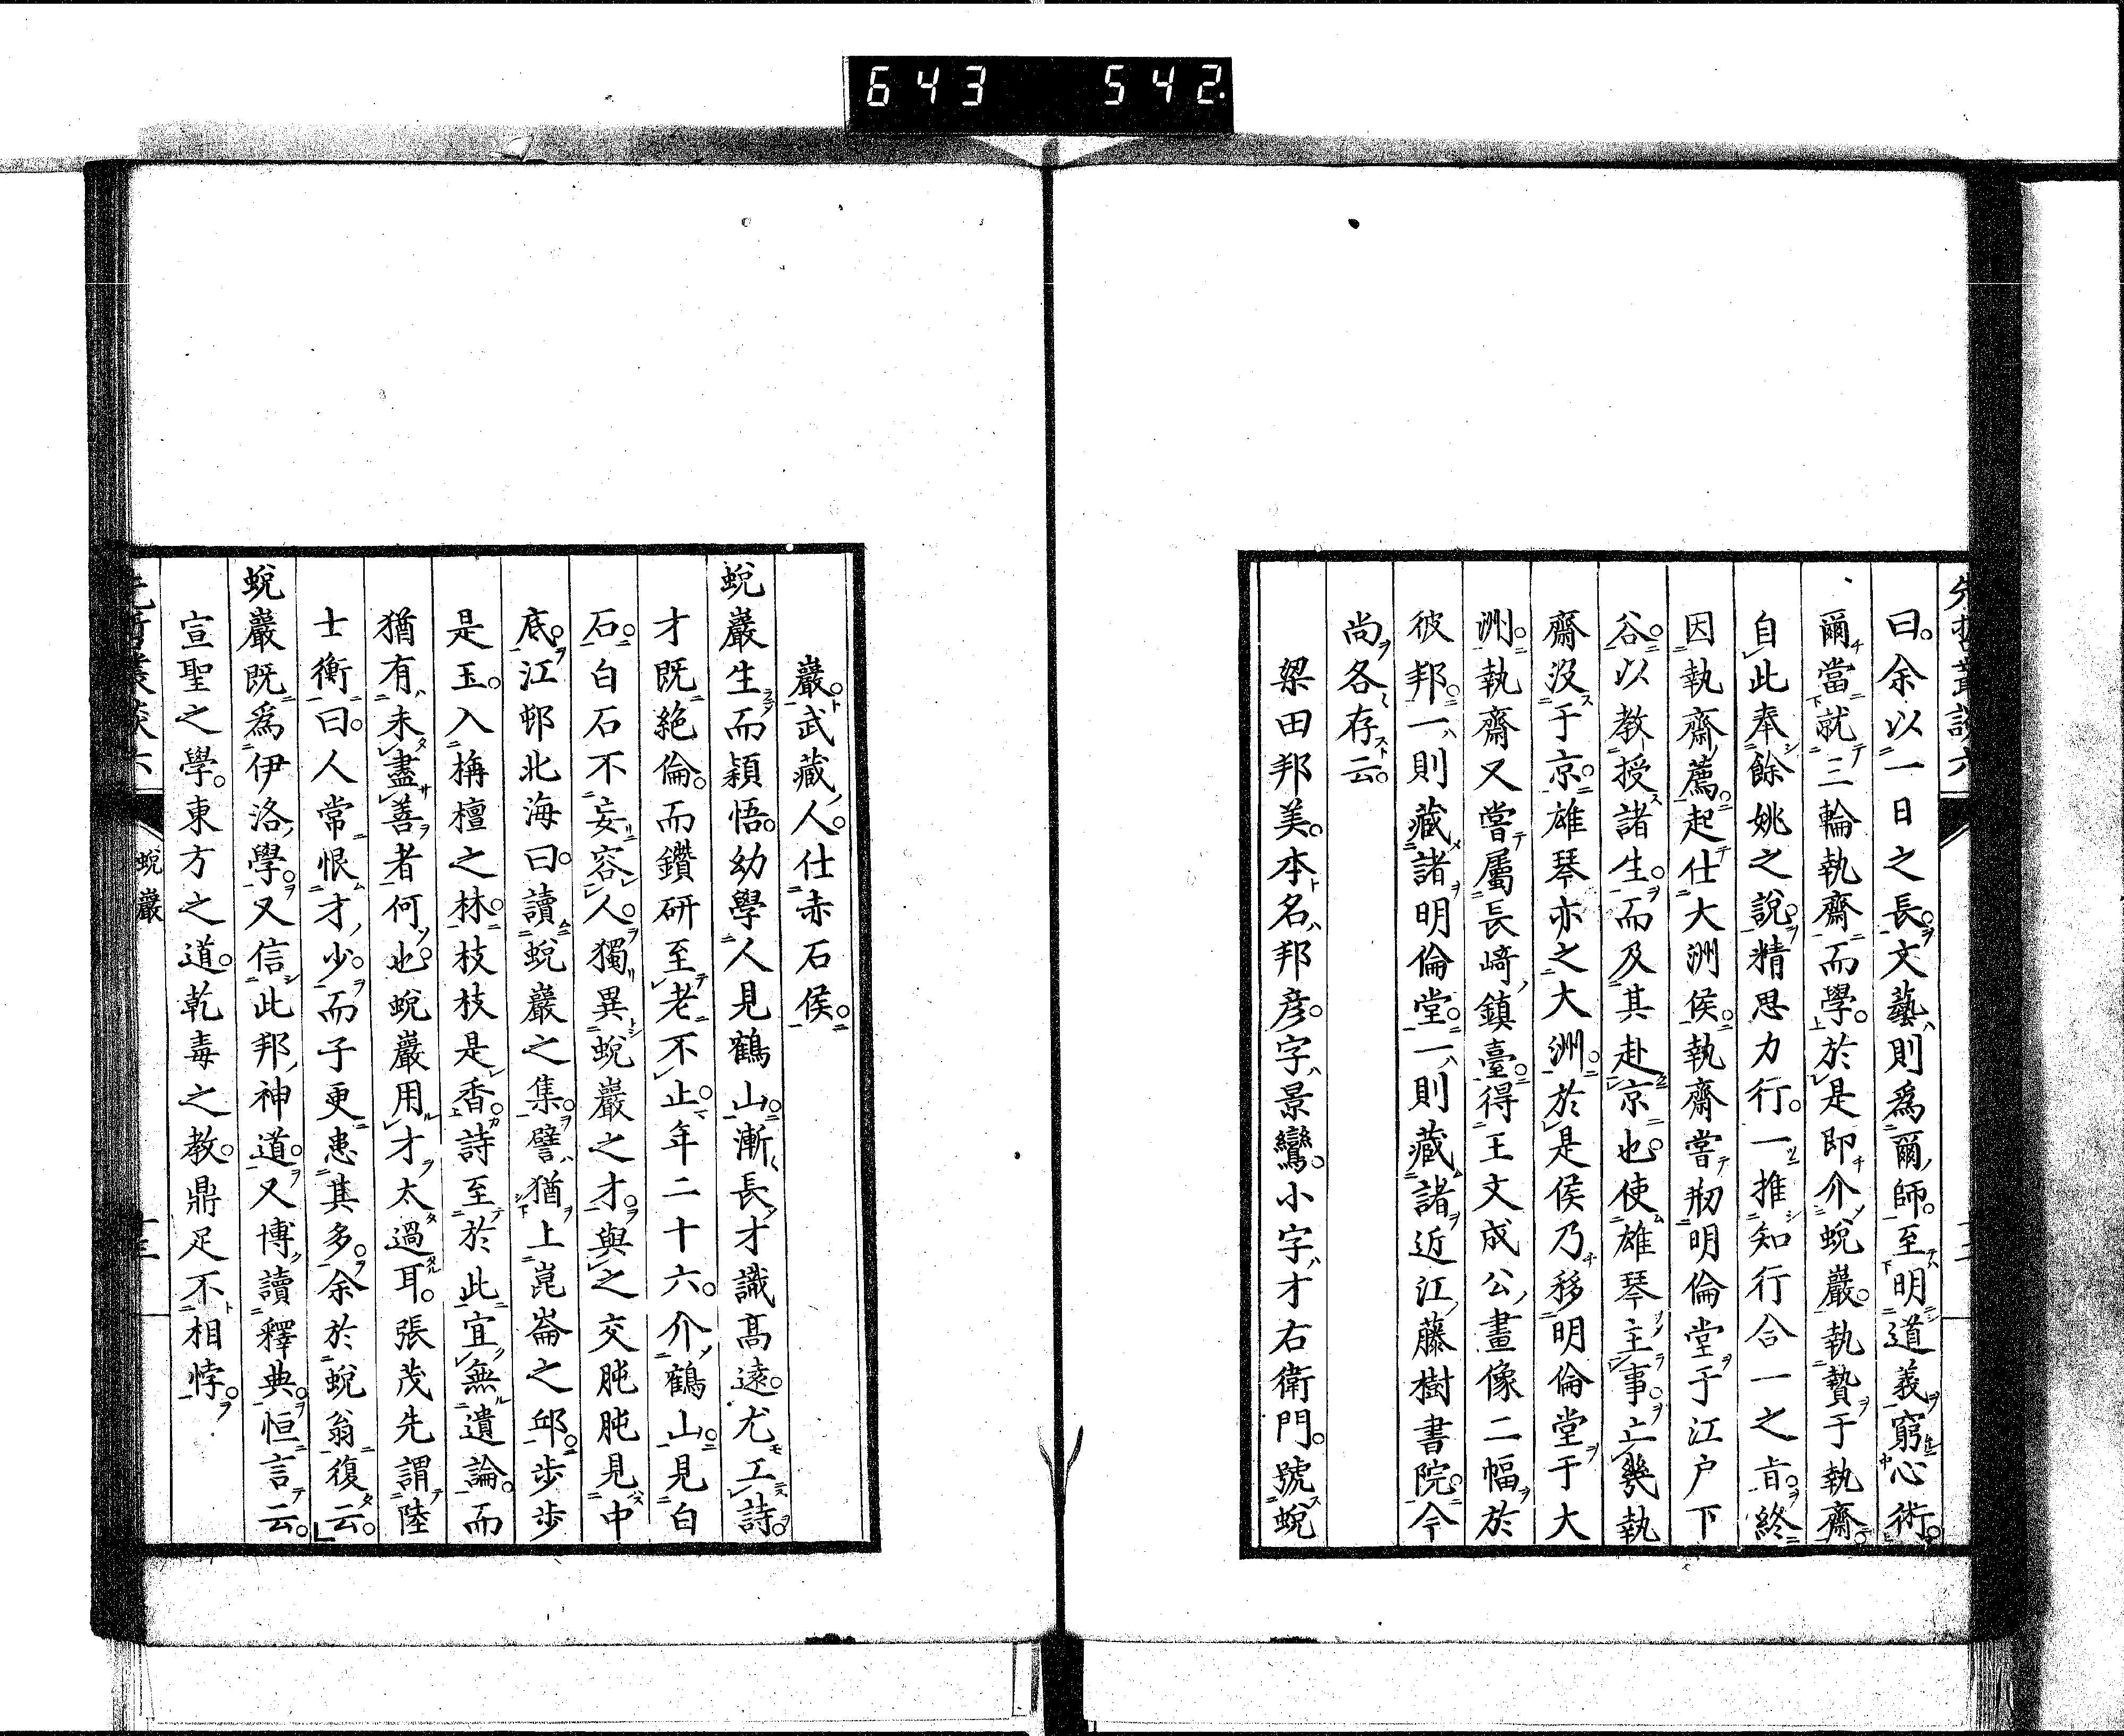 643 542.
先哲叢談六
曰。余以一日之長。文藝則爲爾師。至明道義窮心術。
爾當就三輪執齋而學。於是即介蛻巖。執贄于執齋。
自此奉餘姚之說。精思力行。一推知行合一之旨。終
因執齋薦。起仕大洲侯。執齋嘗剏明倫堂于江戶下
谷。以教授諸生。而及其赴京也。使雄琴主事。亡幾執
齋沒于京。雄琴亦之大洲。於是侯乃移明倫堂于大
洲。執齋又嘗屬長崎鎮臺。得王文成公畫像二幅於
彼邦。一則藏諸明倫堂。一則藏諸近江藤樹書院。今
尚各存云。
梁田邦美。本名邦彦。字景鸞。小字才右衛門。號蛻
巖。武藏人。仕赤石侯。
蛻巖生而穎悟。幼學人見鶴山。漸長才識高遠。尤工詩。
才既絶倫。而鑽研至老不止。年二十六。介鶴山見白
石。白石不妄容人。獨異蛻巖之才。與之交肫肫見中
底。江邨北海曰。讀蛻巖之集。譬猶上崑崙之邱。步步
是玉。入栴檀之林。枝枝是香。詩至於此宜無遺論。而
猶有未盡善者何也。蛻巖用才太過耳。張茂先謂陸
士衡曰。人常恨才少。而子更患其多。余於蛻翁復云。
蛻巖既爲伊洛學。又信此邦神道。又博讀釋典。恒言云。
宣聖之學。東方之道。乾毒之教。鼎足不相悖。
先哲叢談六 蛻巖 十三